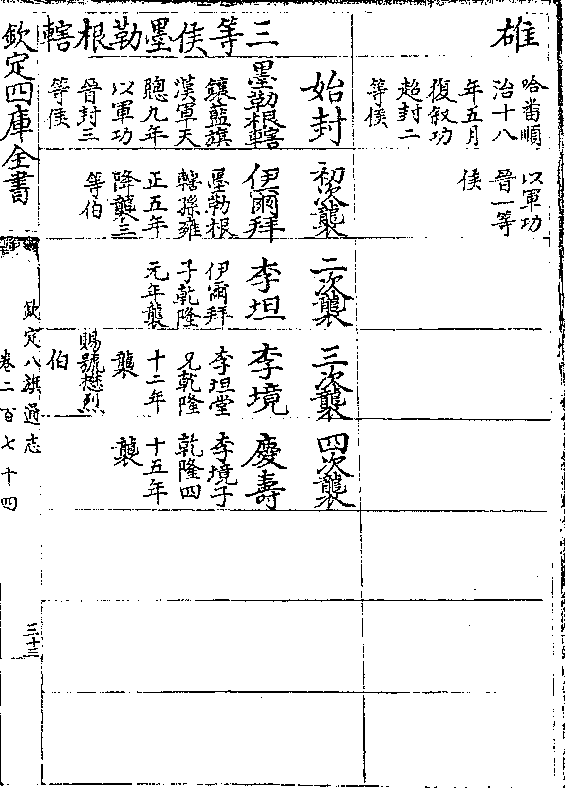 雄
哈畨順
治十八
年五月
復叙功
超封二
等侯
以軍功
晉一等
侯
三等侯墨勒根轄
始封
墨勒根轄
鑲藍旗
漢軍天
聰九年
以軍功
晉封三
等侯
初次襲
伊爾拜
墨勒根
轄孫雍
正五年
降襲三
等伯
二次襲
李坦
伊爾拜
子乾隆
元年襲
三次襲
李境
李坦堂
兄乾隆
十二年
襲
賜號懋烈
伯
四次襲
慶壽
李境子
乾隆四
十五年
襲
欽定四庫全書
欽定八旗通志
卷二百七十四
三十三